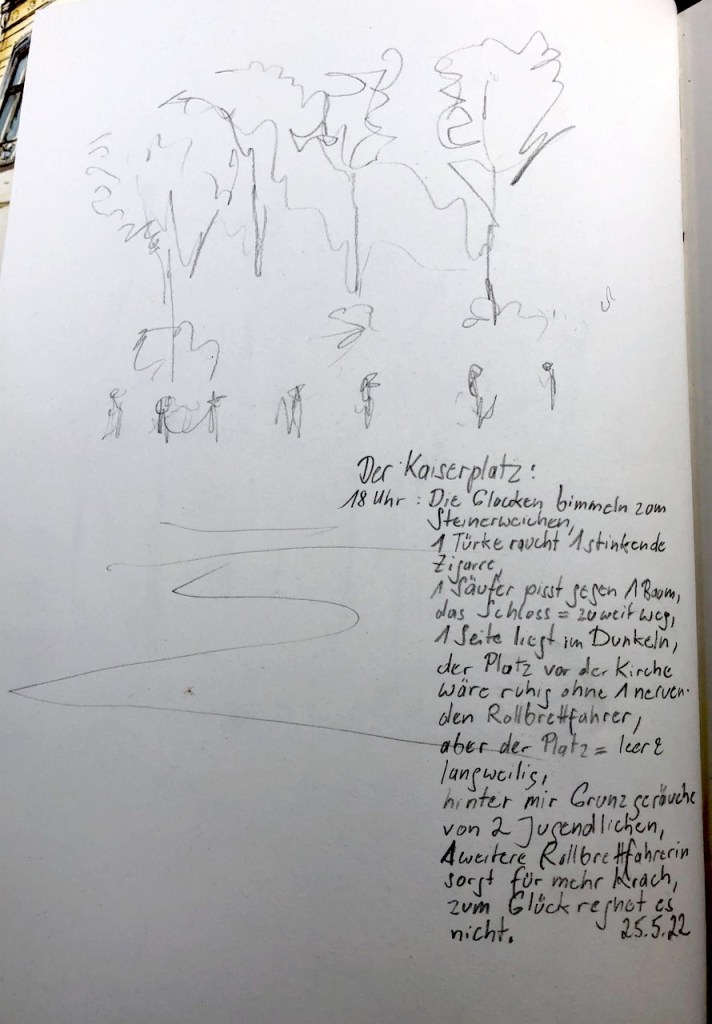 Der Kaiserplatz:
18 Uhr: Die Glocken bimmeln zom
Steinerweichen,
1 Türke raucht 1 stinkende
Zigarre,
1 Säufer pisst gegen 1 Baum,
das Schloss = zu weit weg,
1 Seite liegt im Dunkeln,
der Platz vor der Kirche
wäre ruhig ohne 1 nerven-
den Rollbrettfahrer,
aber der Platz = leer &
langweilig,
hinter mir Grunzgeräuche
von 2 Jugendlichen,
1 weitere Rollbrettfahrerin
sorgt für mehr Krach,
zum Glück regnet es
nicht. 25.5.22